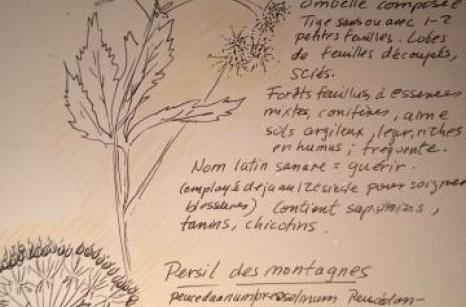 Ombelle composée
Tige sans ou avec 1-2
petites feuilles. Lobes
de feuilles découpés,
sciés.
Forêts feuillus, à essences
mixtes, conifères, aime
sols argileux, riches
en humus ; fréquente.
Nom latin sanare = guérir.
(employé déjà au 12e siècle pour soigner
blessures) Contient saponins,
tanins, chicotins.
Persil des montagnes